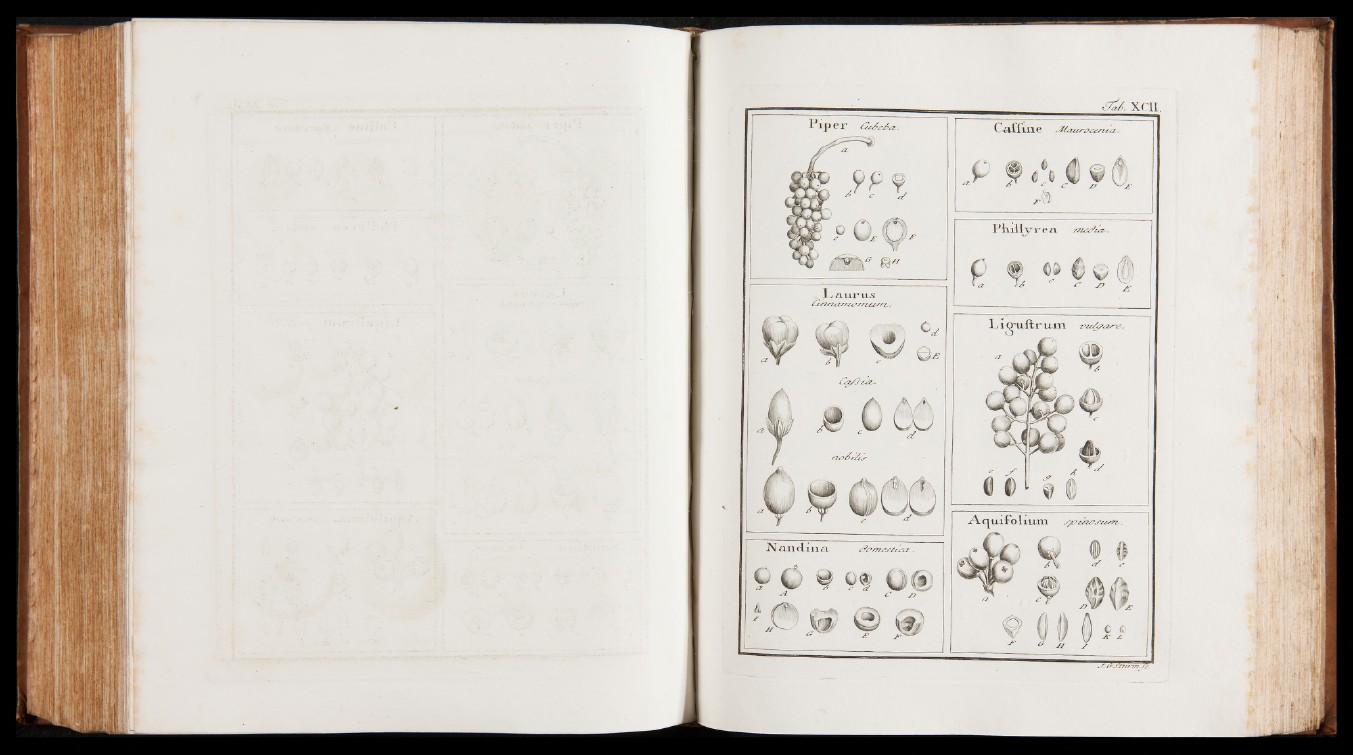 Tab. XCII.
Piper Cubeba.
a
b c d
e E F
G H
Laurus
Cinnamomum.
a b c d
E
Caſsia.
a b c d
nobilis
a b c d
Nandina domestica.
a A b c d C D
F H G E F
Caſſine Maurocenia.
a b c C D E
F
Phillyrea media.
a b c C D E
Liguſtrum vulgare.
a
b
c
d
e f g h
Aquifolium spinosum.
a b d e
c
D E
F G H I K L